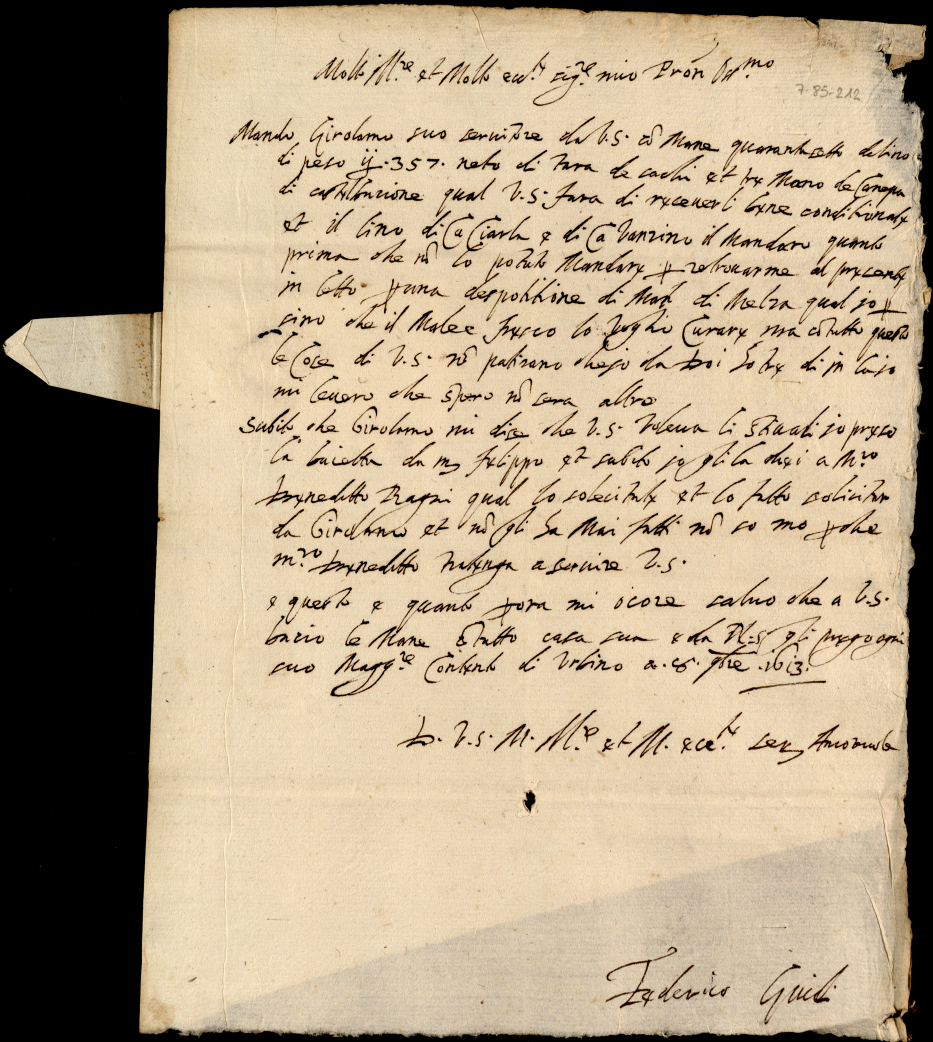 Molto Ill.re et Molto ecc.te sig.re mio Pron Oss.mo
7-85-212
Mando Girolamo suo servitore da V.S. cō Mane quarantasette de lino
di peso ij. 357. neto di tara de sachi et tre Mano de Canepa
di qual V.S. fara di receverli bene conditionate
et il lino di Ca Ciarla e di Ca Vanzino il Mandaro quanto
prima che nō lo potuto Mandare p retrovarme al presente
in letto p una di Mal di Melza qual jo p
sino che il Male fresco lo voglio Curare ma cō tutto questo
le Cose di V.S. nō patirano da doi in la jo
mi levero che spero nō sera altro
Subito che Girolamo mi dise che V.S. voleva li stivali jo preso
la da m filippo et subito jo gli la dieci a M.ro
benedetto qual lo solecitate et lo fatto solicitar
da Girolamo et nō gli ha Mai fatti nō so mo p che
m.ro benedetto a servire V.S.
e questo e quanto p ora mi ocore salvo che a V.S.
bacio le Mane tutto casa sua e da gli prego ogni
suo Magg.re Contento di Urbino a . 9bre . 1613.
D. V.S. M. Ill.re et M. ecc.te ser
Federico Guidi